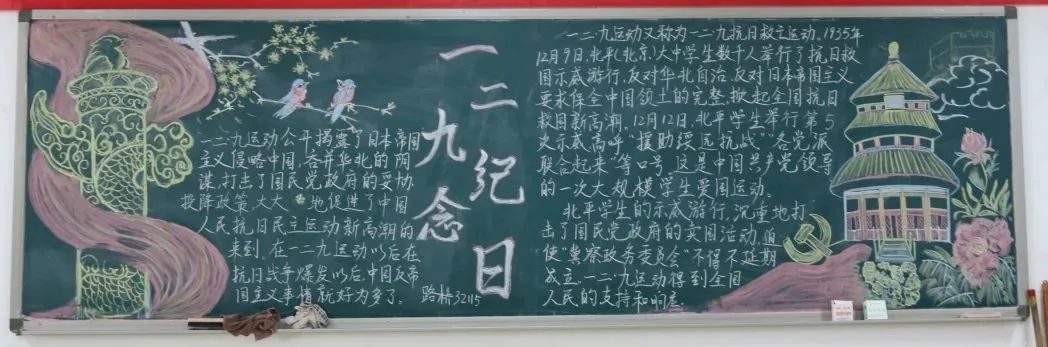 一二九
纪念日
一二九运动公开揭露了日本帝国
主义侵略中国,吞并华北的阴
谋,打击了国民党政府的妥协
投降政策,大大地促进了中国
人民抗日民主运动新高潮的
来到。在一二九运动以后在
抗日战争爆发以后,中国反帝
国主义事情就好为多了。
路桥3211s
一二九运动又称为一二九抗日救亡运动。1935年
12月9日,北平(北京)大中学生数千人举行了抗日救
国示威游行,反对华北自治,反对日本帝国主义
要求保全中国领土的完整,掀起全国抗日
救国新高潮。12月12日,北平学生举行第5
次示威高呼“援助绥远抗战”“各党派
联合起来”等口号。这是中国共产党领导
的一次大规模学生爱国运动。
北平学生的示威游行,沉重地打
击了国民党政府的卖国活动,迫
使“冀察政务委员会”不得不延期
成立。一二·九运动得到全国
人民的支持和响应